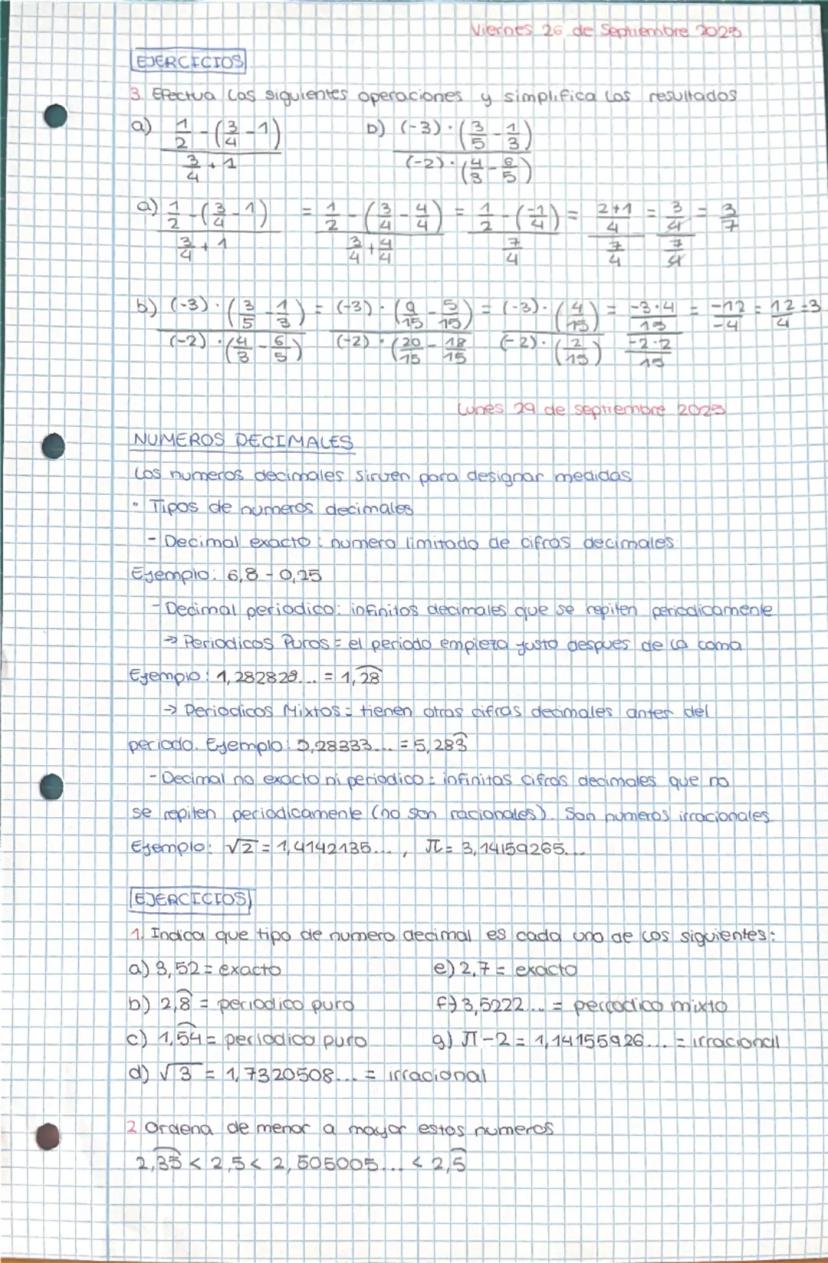 Viernes 26 de Septiembre 2025
EJERCICIOS
3. Efectua los siguientes operaciones y simplifica los resultados
a) (1/2 - (3/4 - 1)) / (3/4 + 1)    b) ((-3) · (3/5 - 1/3)) / ((-2) · (4/3 - 6/5))
a) (1/2 - (3/4 - 1)) / (3/4 + 1) = (1/2 - (3/4 - 4/4)) / (3/4 + 4/4) = (1/2 - (-1/4)) / (7/4) = ((2+1)/4) / (7/4) = (3/4) / (7/4) = 3/7
b) ((-3) · (3/5 - 1/3)) / ((-2) · (4/3 - 6/5)) = ((-3) · (9/15 - 5/15)) / ((-2) · (20/15 - 18/15)) = ((-3) · (4/15)) / ((-2) · (2/15)) = (-3·4/15) / (-2·2/15) = -12/-4 = 12/4 = 3
Lunes 29 de septiembre 2025
NUMEROS DECIMALES
Los numeros decimales sirven para designar medidas
· Tipos de numeros decimales
- Decimal exacto: numero limitado de cifras decimales
Ejemplo: 6,8 - 0,25
- Decimal periodico: infinitos decimales que se repiten periodicamente
→ Periodicos Puros = el periodo empieza justo despues de la coma
Ejemplo: 1,282828... = 1,2͡8
→ Periodicos Mixtos = tienen otras cifras decimales antes del
periodo. Ejemplo: 5,28333... = 5,283̑
- Decimal no exacto ni periodico = infinitas cifras decimales que no
se repiten periodicamente (no son racionales). Son numeros irracionales
Ejemplo: √2 = 1,4142135..., π = 3,14159265...
EJERCICIOS
1. Indica que tipo de numero decimal es cada uno de los siguientes:
a) 3,52 = exacto    e) 2,7 = exacto
b) 2,8̑ = periodico puro    f) 3,5222... = periodico mixto
c) 1,5͡4 = periodico puro    g) π - 2 = 1,14155926... = irracional
d) √3 = 1,7320508... = irracional
2. Ordena de menor a mayor estos numeros
2,3͡5 < 2,5 < 2,505005... < 2,5̑